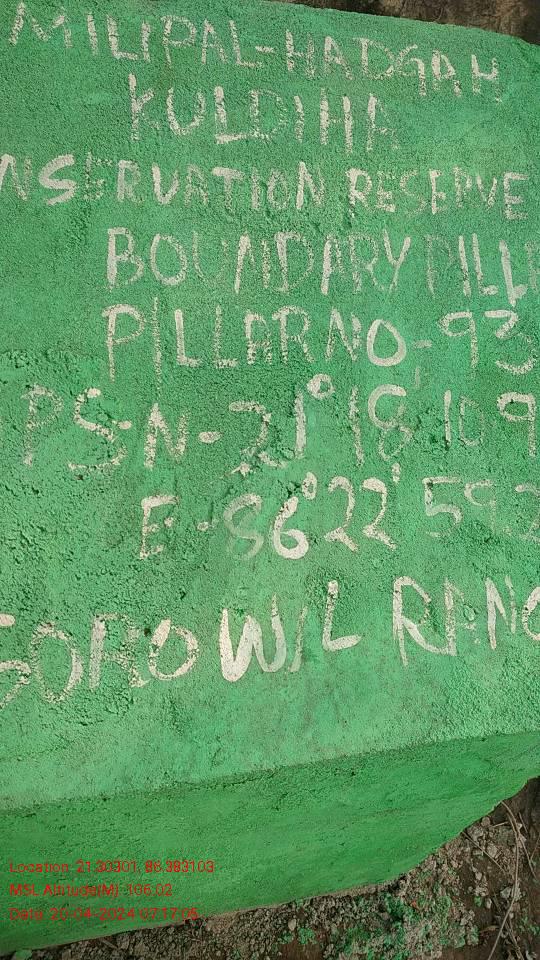 MILIPAL-HADGAH
KULDIHA
NSERVATION RESERVE
BOUNDARY PILL
PILLAR NO-93
PSN-21°18'109
E-86°22'592
SORO W/L RANG
Location: 21.30301, 86.383103
MSL Altitude(M): 106.02
Date: 20-04-2024 07:17:05